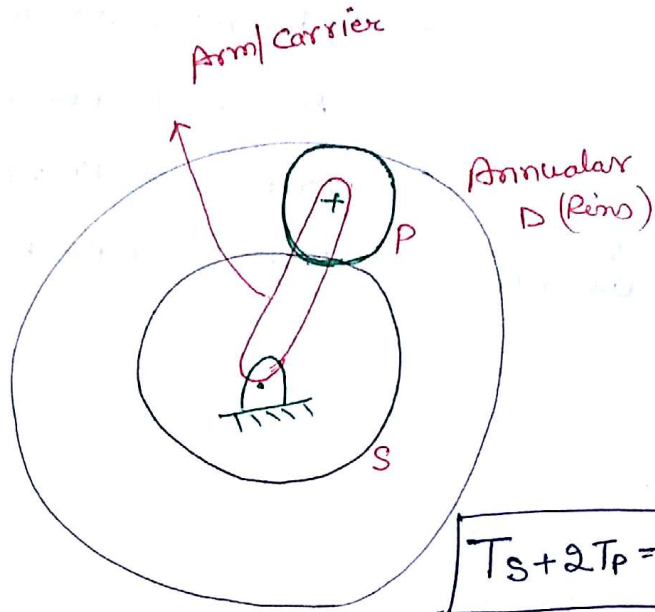 Arm/Carrier
Annualar
D (Rins)
P
S
Ts+2Tp=